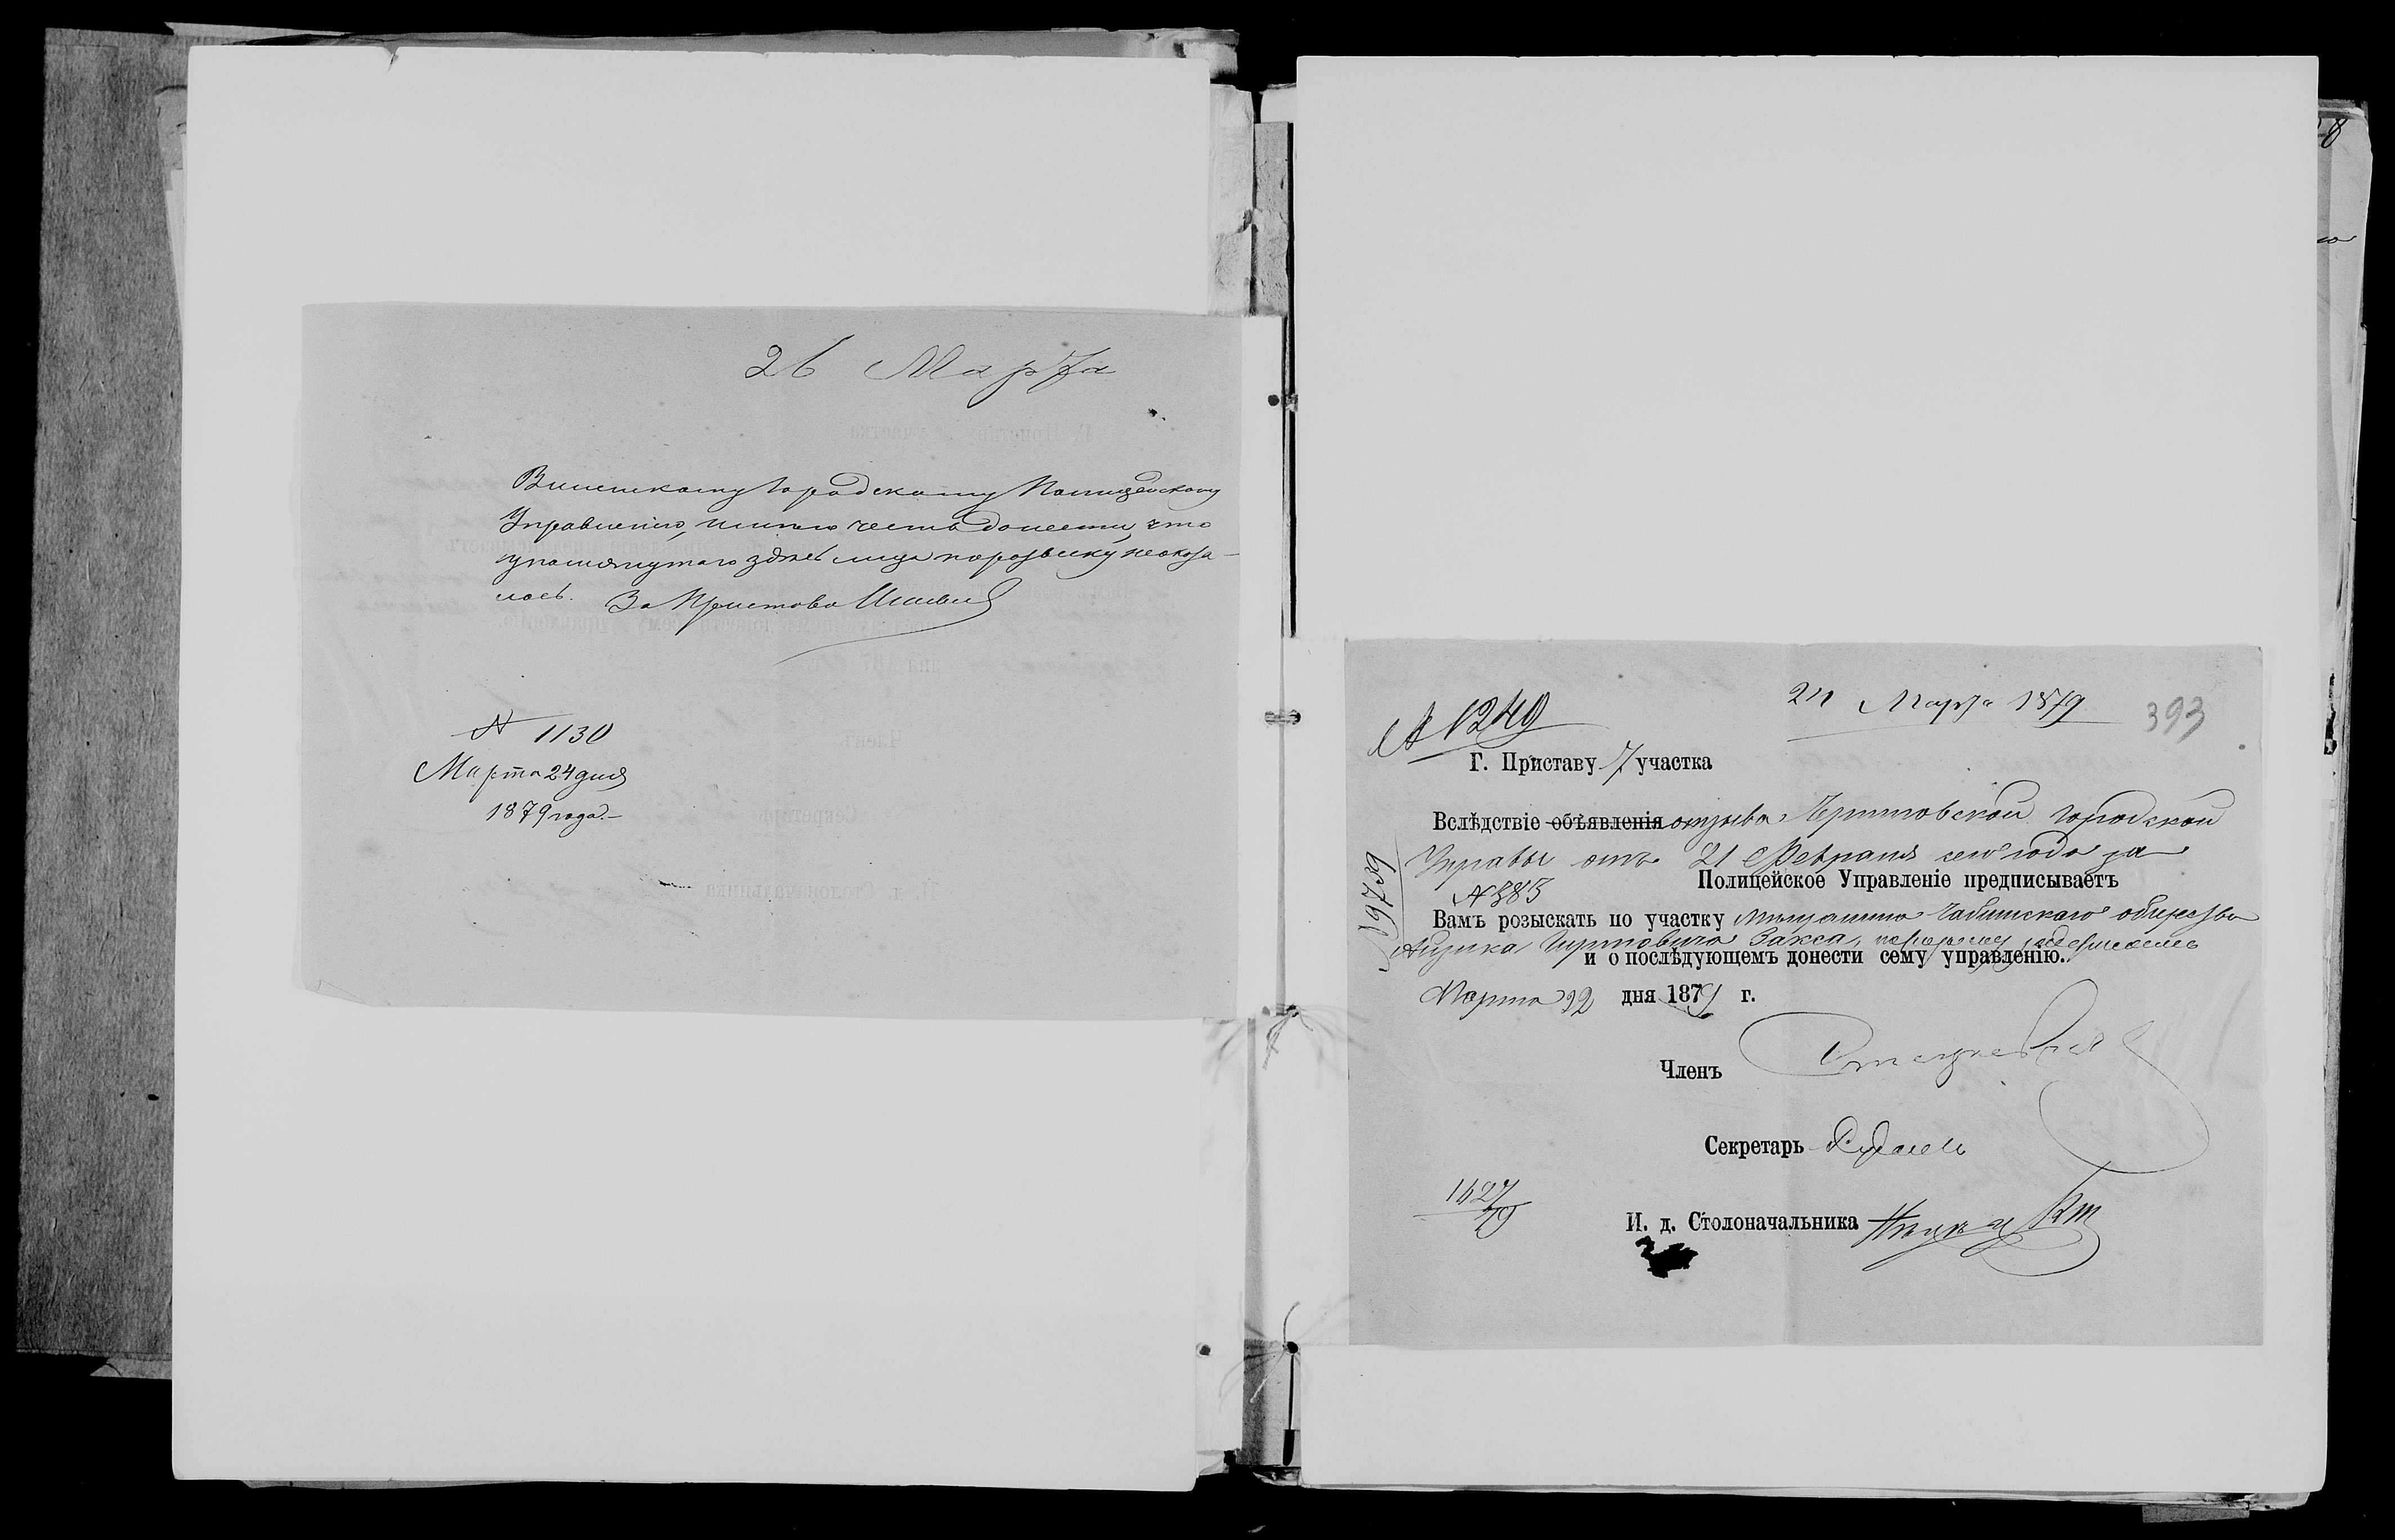 26 Марта
Виленскому Городскому Полицейскому
Управленію, имѣю честь донести, что
упомянутаго здѣсь лица по розыску неоказа-
лось. За Пристава
№ 1130
Марта 24 дня
1879 года.
24 Марта 1879
393
№ 1249
Г. Приставу 7 участка
Вслѣдствіе объявленія отзыва Городской
Управы отъ 21 Февраля сего года за
№ 385
Полицейское Управленіе предписываетъ
Вамъ розыскать по участку мѣщанина общества
Айзика Закса,
и о послѣдующемъ донести сему управленію.
Марта 22 дня 1879 г.
Членъ
Секретарь
1627/79
И. д. Столоначальника